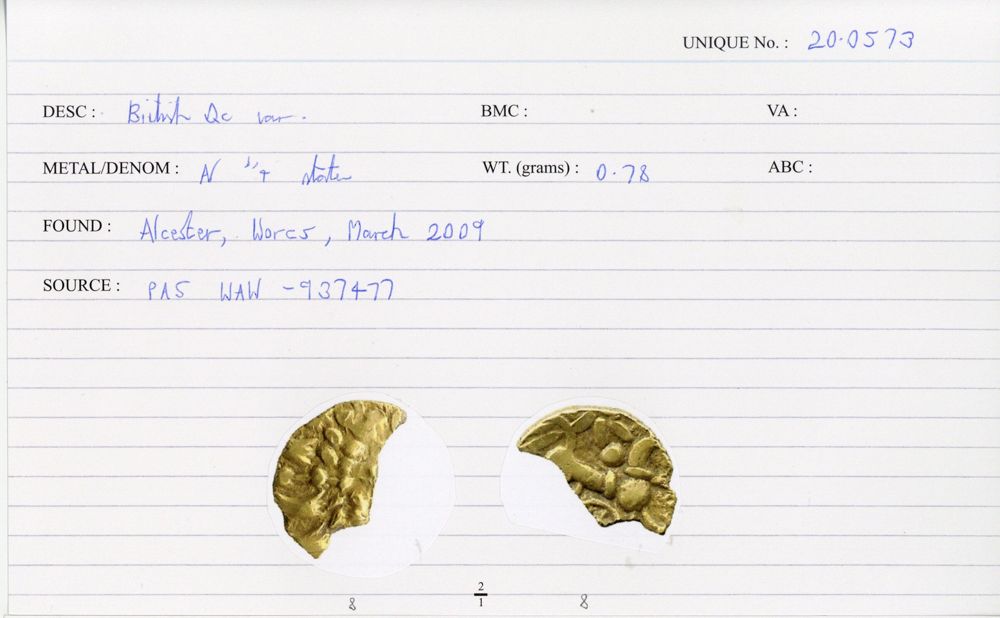 UNIQUE No. : 20·0573
DESC : British Qc var. BMC : VA :
METAL/DENOM : N 1/4 stater WT. (grams) : 0.78 ABC :
FOUND : Alcester, Worcs, March 2009
SOURCE : PAS WAW -937477
2
8 1 8